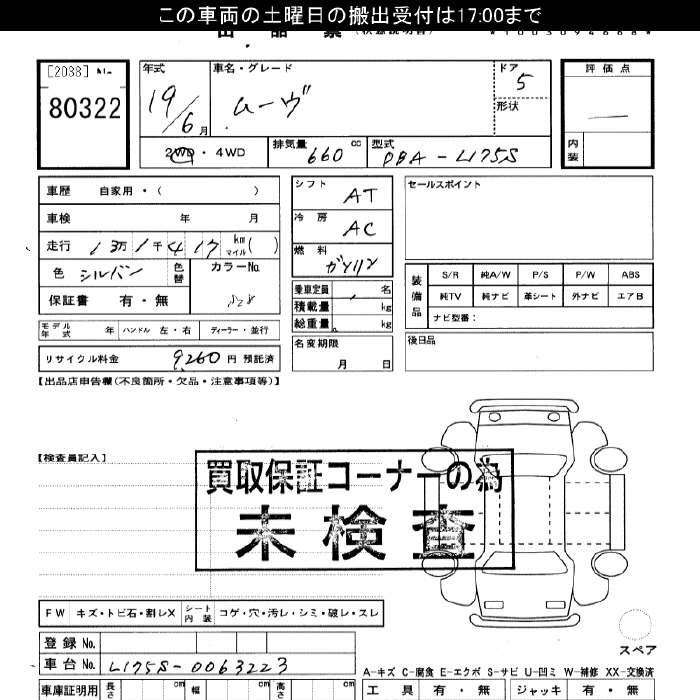 この車両の土曜日の搬出受付は17:00まで
[2038] No.
80322
年式
19/6月
車名・グレード
ムーヴ
ドア
5
形状
評価点
内装
2WD・4WD
排気量 660 cc
型式 DBA-L175S
車歴 自家用・( )
車検 年 月
走行 13万1千417 km マイル( )
色 シルバー 色替
カラーNo.
保証書 有・無
モデル年式 年 ハンドル 左・右 ディーラー・並行
リサイクル料金 9,260 円 預託済
シフト AT
冷房 AC
燃料 ガソリン
乗車定員 名
積載量 kg
総重量 kg
名変期限
月 日
セールスポイント
装備品
S/R 純A/W P/S P/W ABS
純TV 純ナビ 革シート 外ナビ エアB
ナビ型番:
後日品
【出品店申告欄(不良箇所・欠品・注意事項等)】
【検査員記入】
買取保証コーナーの為
未検査
FW キズ・トビ石・割レX シート内装 コゲ・穴・汚レ・シミ・破レ・スレ
スペア
登録No.
車台No. L175S-0063223
A-キズ C-腐食 E-エクボ S-サビ U-凹ミ W-補修 XX-交換済
車庫証明用 長さ cm 幅 cm 高さ cm
工具 有・無 ジャッキ 有・無